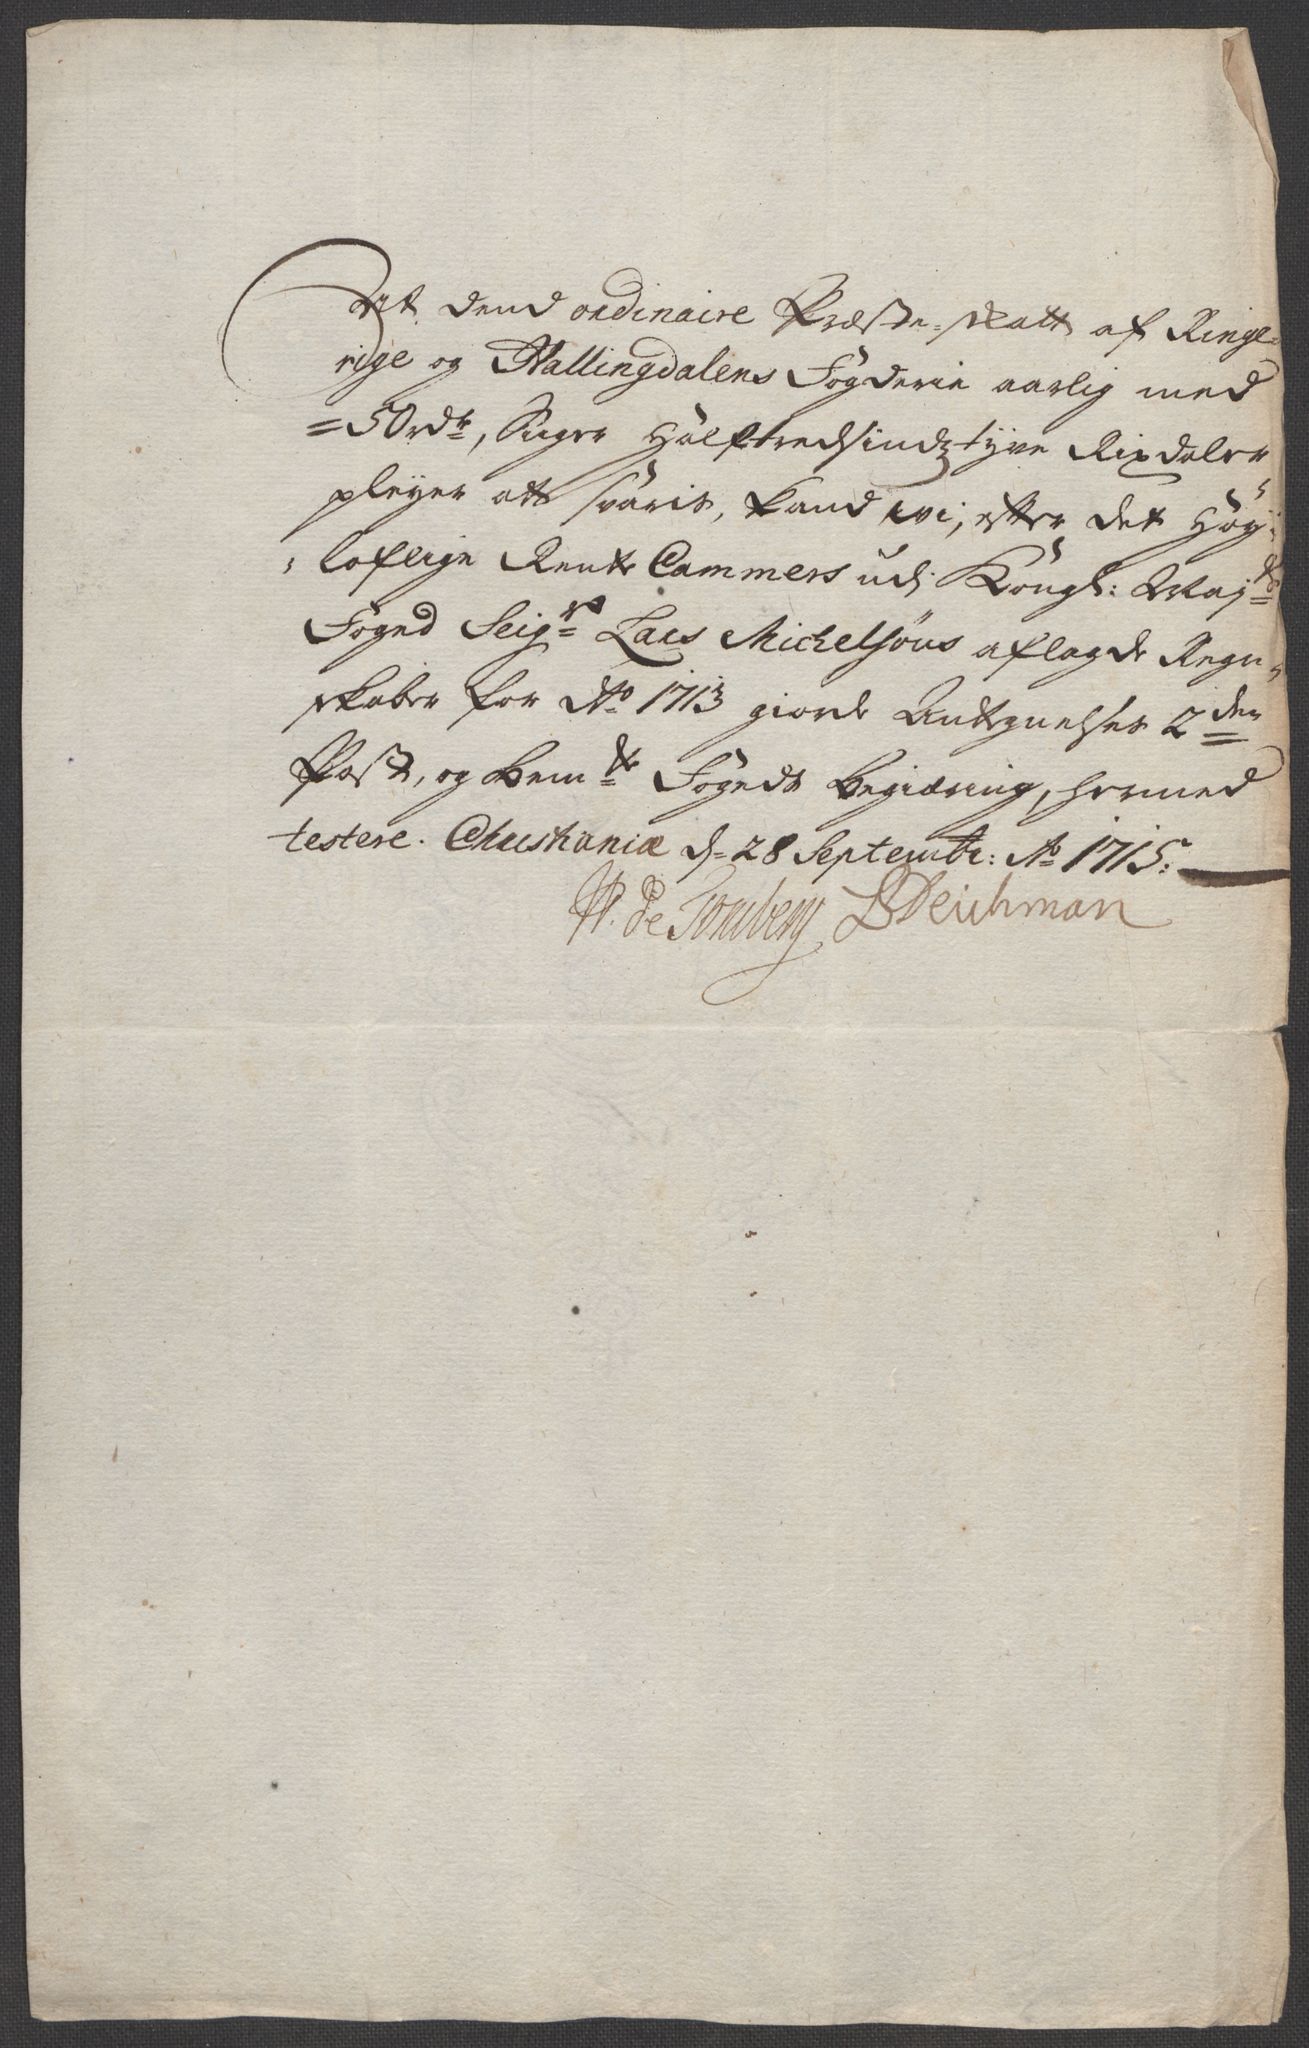 At dend ordinaire Præste-skatt af Ringe-
rige og Hallingdalens Fögderie aarlig med
=50 rdr, siger Halftredsindztÿve Rixdaler
pleÿer att svaris, kand vi, efter det Höÿ-
loflige Rente Cammers udj Kongl: Maj:ts
Foged Seig:r Lars Michelsöns aflagde Regn-
skaber for Ao 1713 giorde Antegnelses 2den
Post, og bem:te Fogeds begiæring, hermed
testere. Christiania d. 28 Septembr: Ao 1715.
de Tonsberg BDeichman